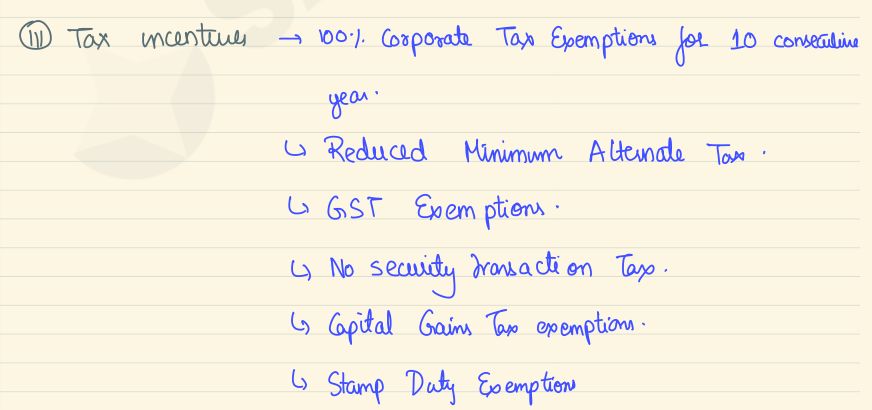 (iii) Tax incentives → 100% Corporate Tax Exemptions for 10 consecutive
year.
↳ Reduced Minimum Alternate Tax.
↳ GST Exemptions.
↳ No security transaction Tax.
↳ Capital Gains Tax exemptions.
↳ Stamp Duty Exemptions